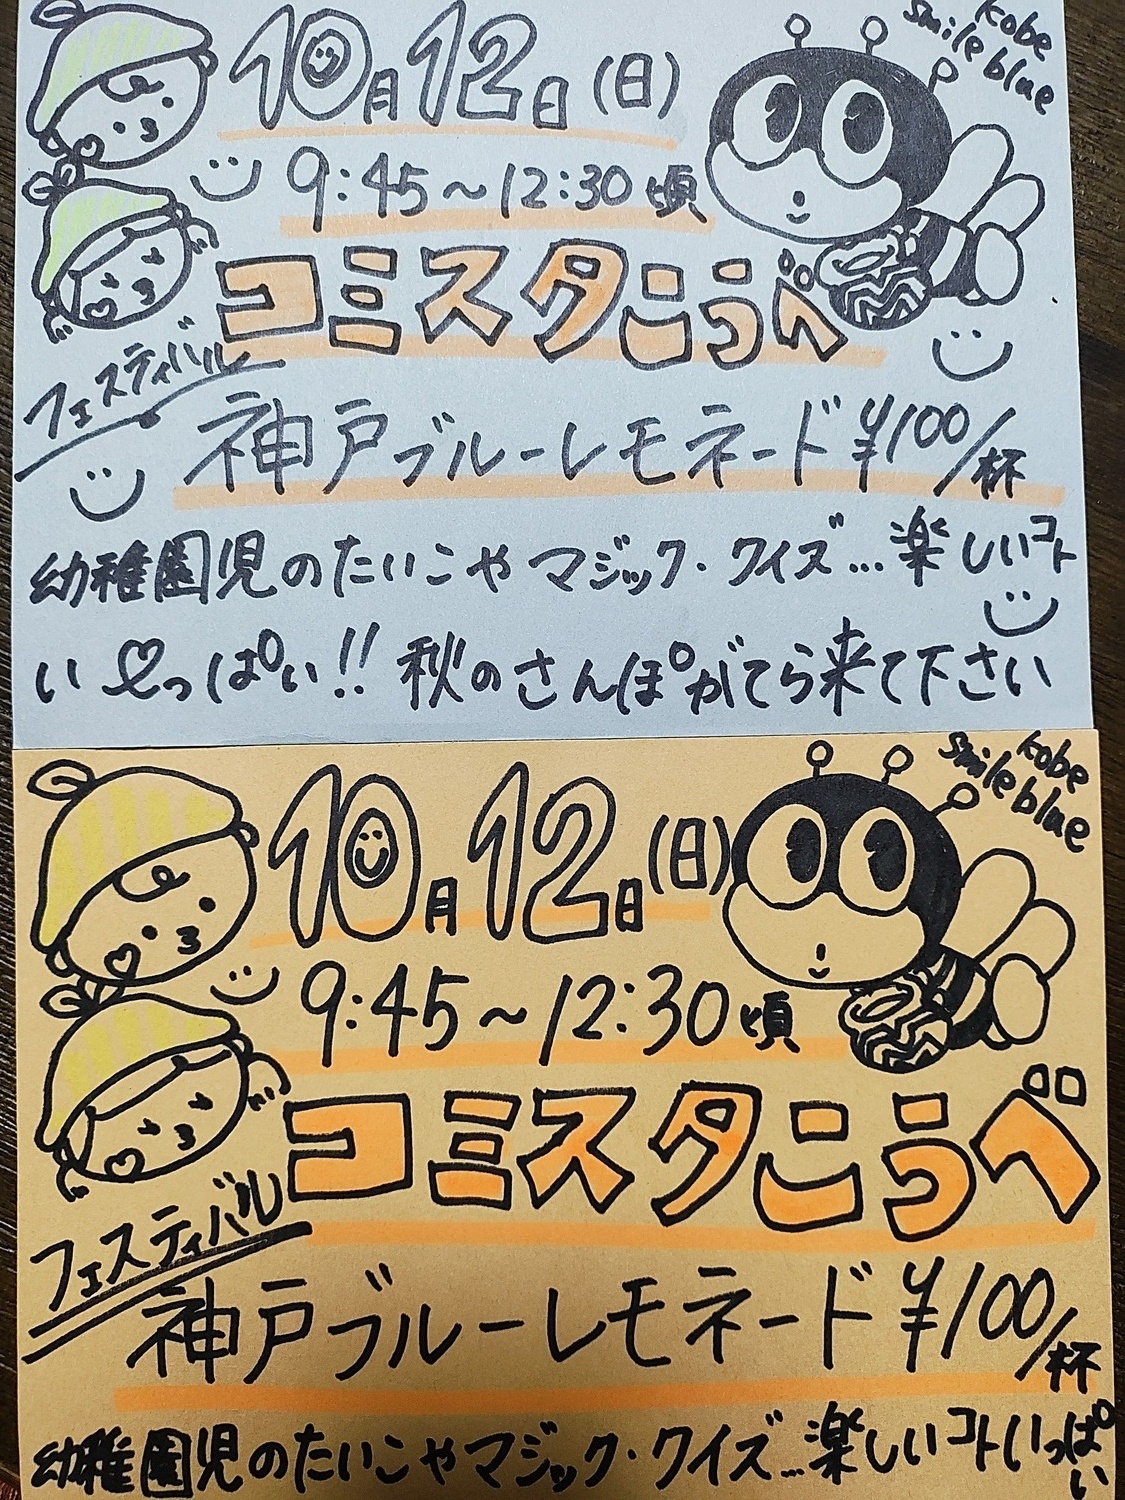 kobe
smile blue
10月12日(日)
9:45～12:30頃
コミスタこうべ
フェスティバル
神戸ブルーレモネード¥100/杯
幼稚園児のたいこやマジック・クイズ…楽しいコト
いっぱい!! 秋のさんぽがてら来て下さい
kobe
smile blue
10月12日(日)
9:45～12:30頃
コミスタこうべ
フェスティバル
神戸ブルーレモネード¥100/杯
幼稚園児のたいこやマジック・クイズ…楽しいコトいっぱい